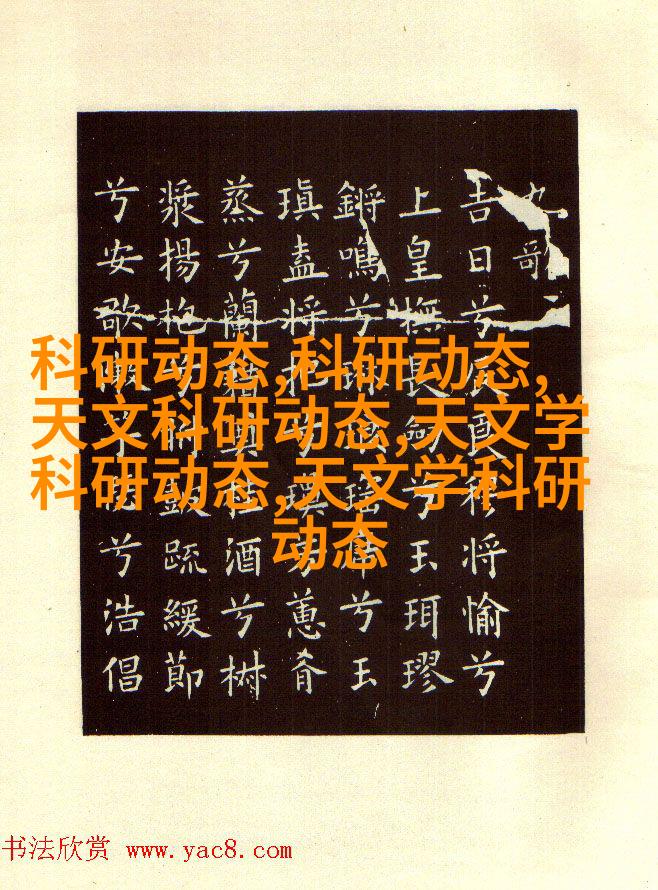 九歌
吉日兮辰良穆将愉兮
上皇撫長劍兮玉珥璆
鏘鳴兮琳琅瑶席兮玉
瑱盍将把兮瓊芳蕙肴
蒸兮蘭藉奠桂酒兮椒
漿揚枹兮拊鼓疏緩節
兮安歌陳竽瑟兮浩倡
科研动态,科研动态,
天文科研动态,天文学
科研动态,天文学科研
动态
书法欣赏 www.yac8.com